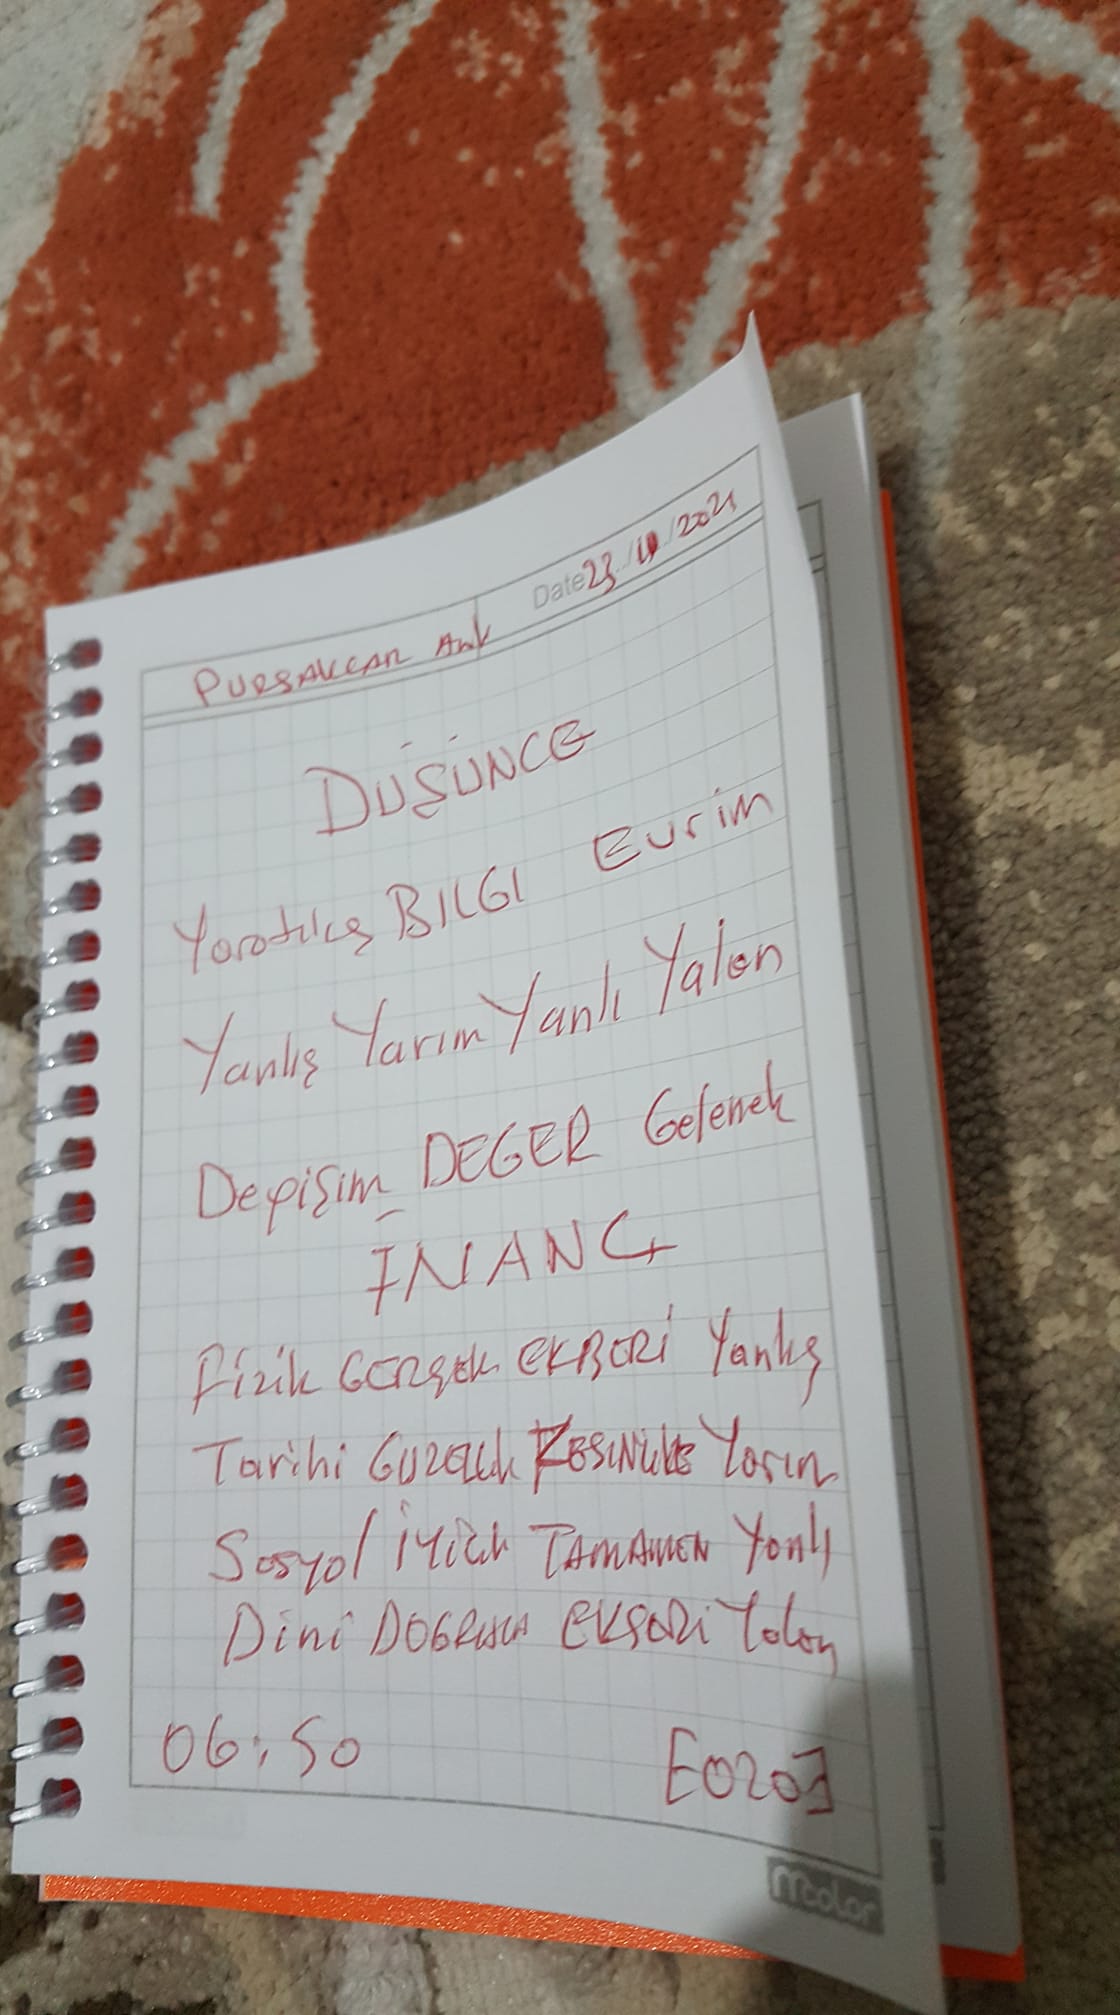 PURSAKLAR Ank Date 23/11/2021
DÜŞÜNCE
Yaratılış BILGI Evrim
Yanlış Yarım Yanlı Yalan
Değişim DEGER Gelenek
İNANÇ
Fizik GERÇEK EKSERİ Yanlış
Tarihi GÜZELLİK KESİNLİKLE Yarım
Sosyal İYİLİK TAMAMEN Yanlı
Dini DOGRULUK EKSERİ Yalan
06:50 E0203
mcolor